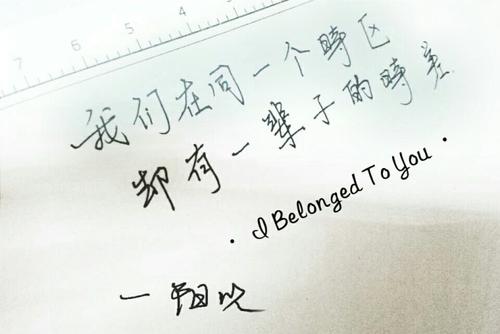 7 6 5 4 3
我们在同一个時区
却有一辈子的時差
· I Belonged To You ·